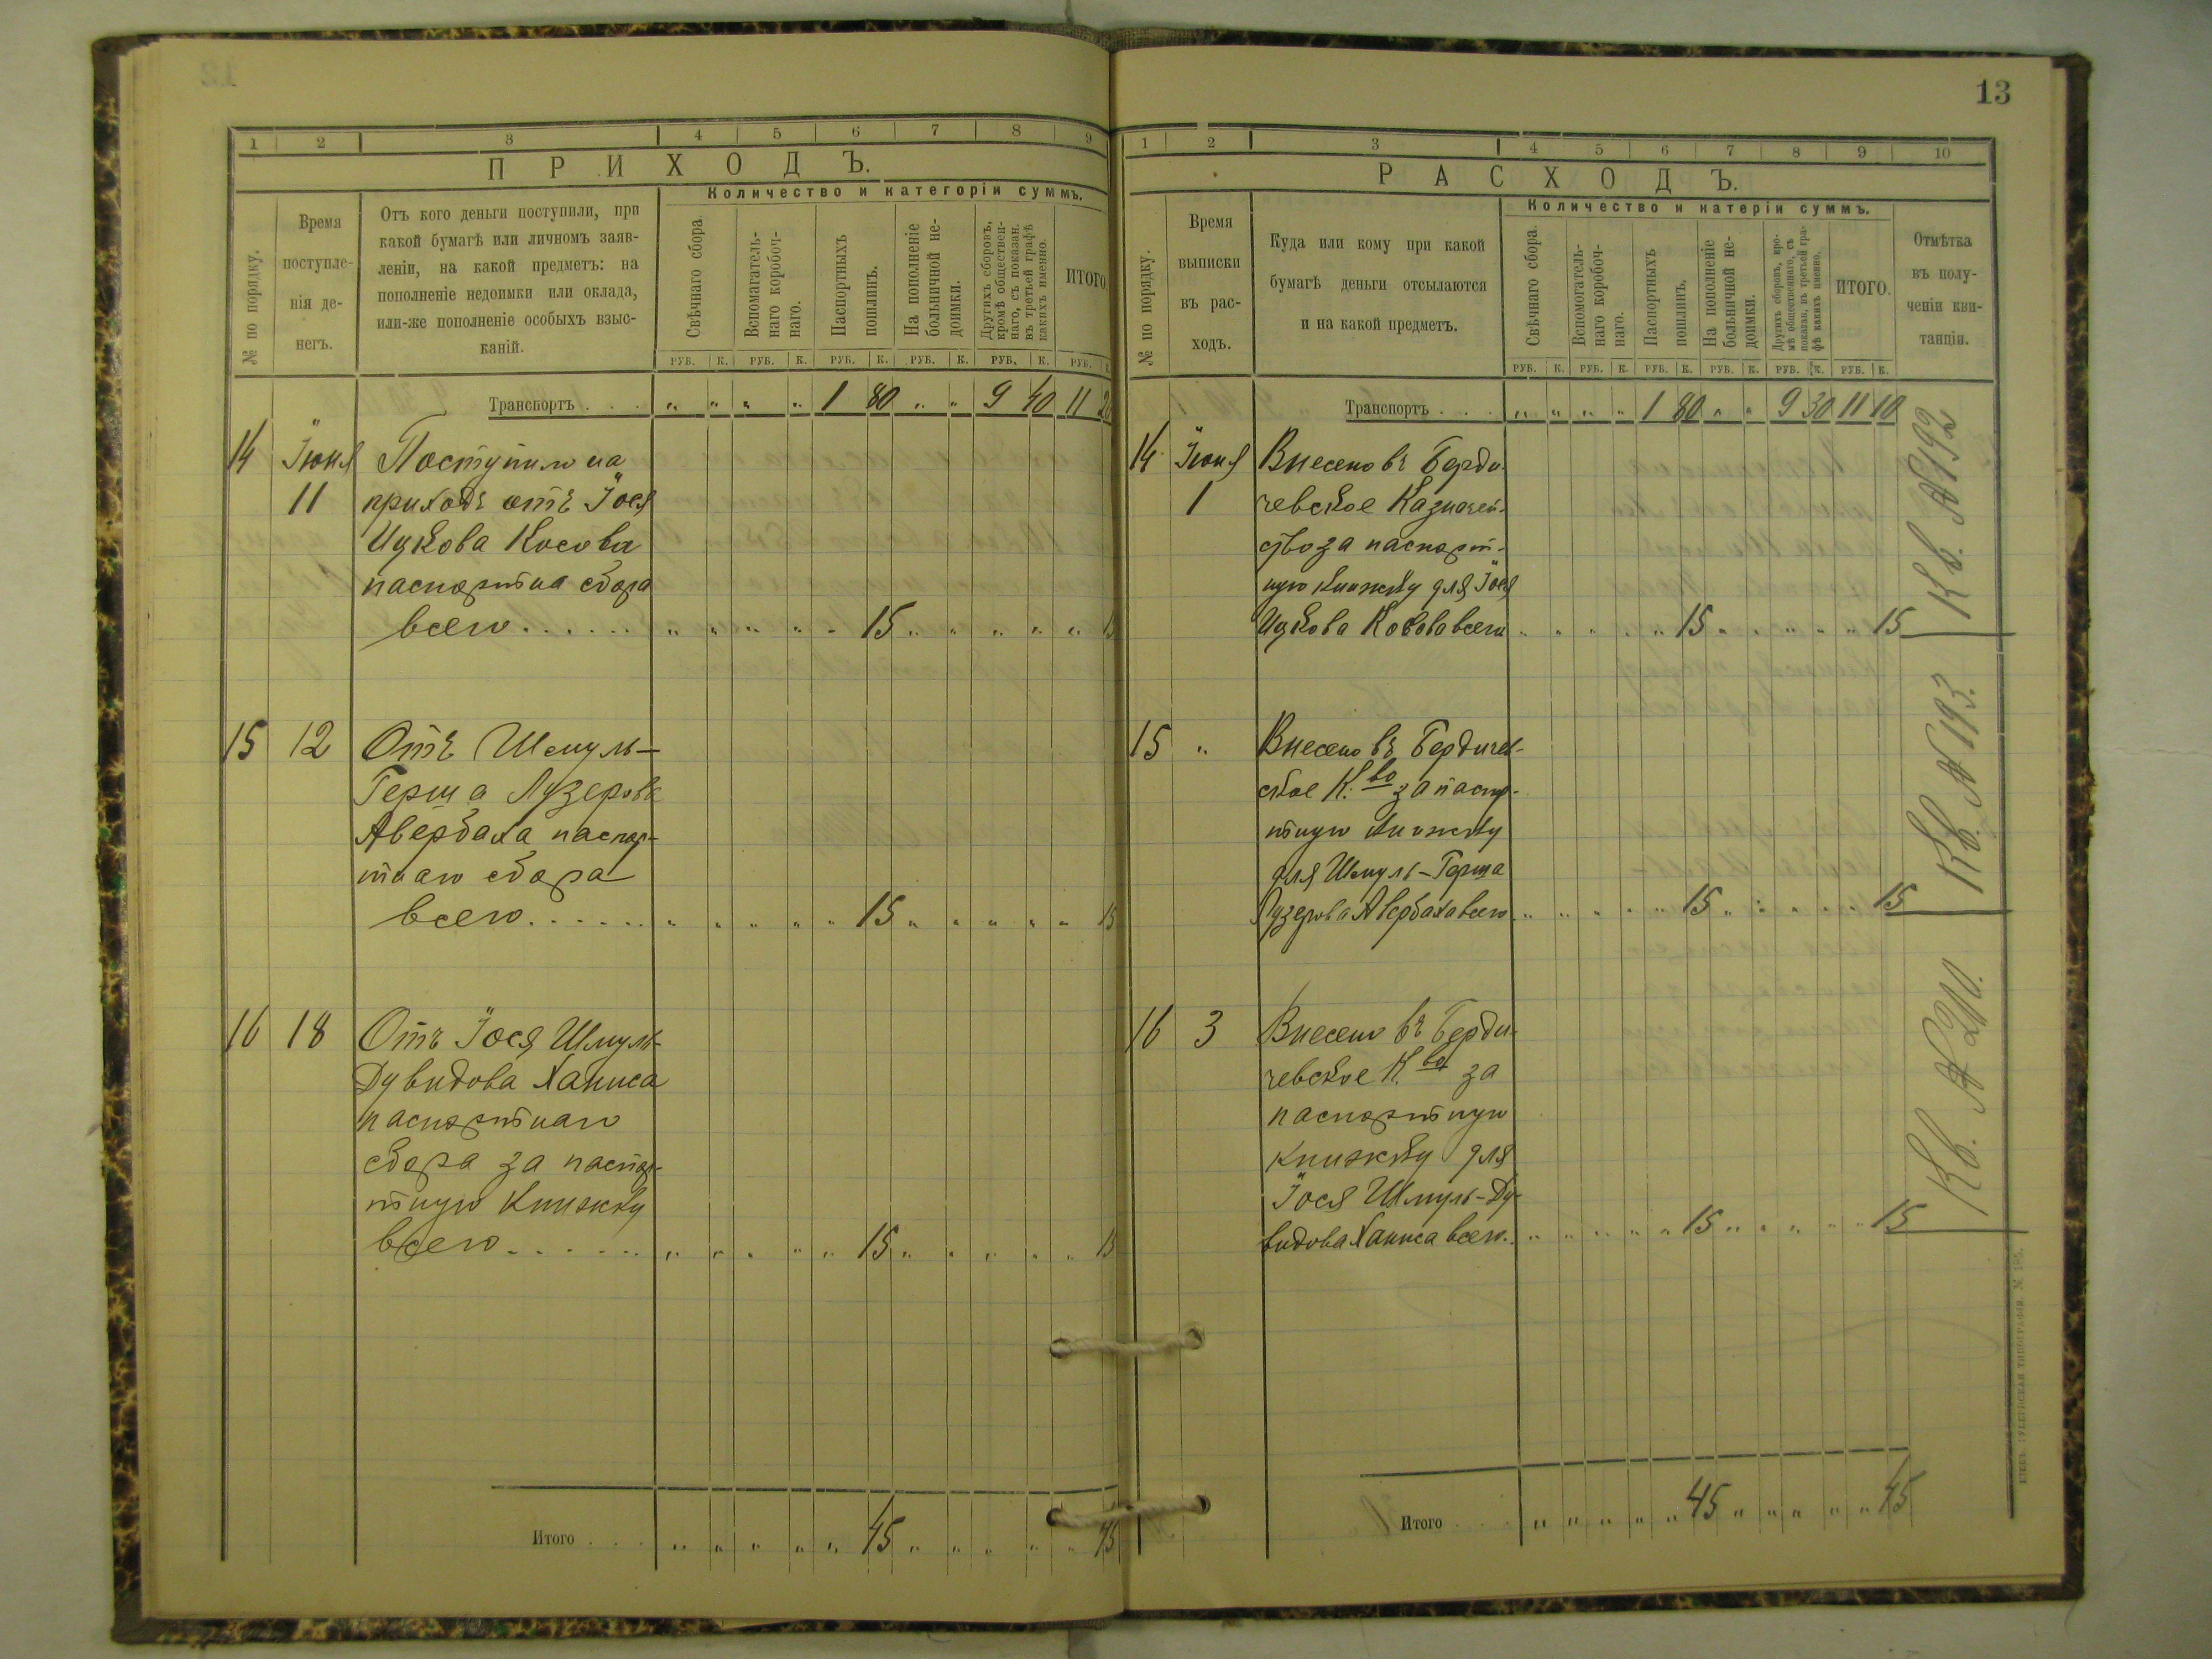 13
1 2 3 4 5 6 7 8 9
ПРИХОДЪ.
Количество и категоріи суммъ.
№ по порядку.
Время
поступле-
нія де-
негъ.
Отъ кого деньги поступили, при
какой бумагѣ или личномъ заяв-
леніи, на какой предметъ: на
пополненіе недоимки или оклада,
или-же пополненіе особыхъ взыс-
каній.
Свѣчнаго сбора
Вспомагатель-
наго коробоч-
наго.
Паспортныхъ
пошлинъ.
На пополненіе
больничной не-
доимки.
Другихъ сборовъ,
кромѣ обществен-
наго, съ показан.
въ третьей графѣ
какихъ именно.
ИТОГО.
РУБ. К. РУБ. К. РУБ. К. РУБ. К. РУБ. К. РУБ. К.
Транспортъ . . . „ „ „ „ 1 80 „ „ 9 40 11 20
14 Іюня Поступило на
11 приходъ отъ Іося
Ицкова Косова
паспортна сбора
всего . . . . . . „ „ „ „ „ 15 „ „ „ „ „ 15
15 12 Отъ Шмуль-
Герша Лузерова
Авербаха паспор-
тнаго сбора
всего . . . . . . „ „ „ „ „ 15 „ „ „ „ „ 15
16 18 Отъ Іося Шмуль-
Дувидова Ханиса
паспортнаго
сбора за паспор-
тную книжку
всего . . . . . . „ „ „ „ „ 15 „ „ „ „ „ 15
Итого . . . „ „ „ „ „ 45 „ „ „ „ „ 45
1 2 3 4 5 6 7 8 9 10
РАСХОДЪ.
Количество и катеріи суммъ.
№ по порядку.
Время
выписки
въ рас-
ходъ.
Куда или кому при какой
бумагѣ деньги отсылаются
и на какой предметъ.
Свѣчнаго сбора.
Вспомогатель-
наго коробоч-
наго.
Паспортныхъ
пошлинъ.
На пополненіе
больничной не-
доимки.
Другихъ сборовъ, кро-
мѣ общественнаго, съ
показан. въ третьей гра-
фѣ какихъ именно.
ИТОГО.
Отмѣтка
въ полу-
ченіи кви-
танціи.
РУБ. К. РУБ. К. РУБ. К. РУБ. К. РУБ. К. РУБ. К.
Транспортъ . . . „ „ „ „ 1 80 „ „ 9 30 11 10
14 Іюня Внесено въ Берди-
1 чевское Казначей-
ство за паспорт-
ную книжку для Іося
Ицкова Косова всего „ „ „ „ „ 15 „ „ „ „ „ 15
Кв. № 192
15 „ Внесено въ Бердичев-
ское К.во за паспор-
тную книжку
для Шмуль-Герша
Лузерова Авербаха всего „ „ „ „ „ 15 „ „ „ „ „ 15
Кв. № 193.
16 3 Внесено въ Берди-
чевское К.во за
паспортную
книжку для
Іося Шмуль-Ду-
видова Ханиса всего „ „ „ „ „ 15 „ „ „ „ „ 15
Кв. № 210.
Итого . . . „ „ „ „ „ 45 „ „ „ „ „ 45